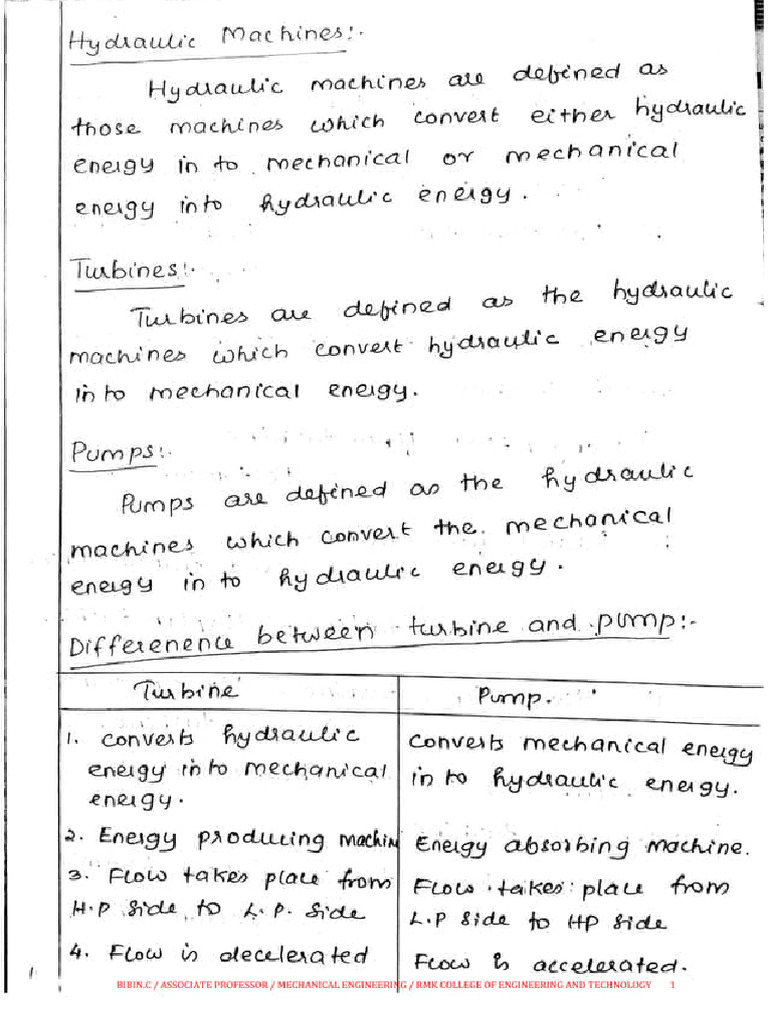 Hydraulic Machines:-
Hydraulic machines are defined as
those machines which convert either hydraulic
energy in to mechanical or mechanical
energy into hydraulic energy.
Turbines:-
Turbines are defined as the hydraulic
machines which convert hydraulic energy
in to mechanical energy.
Pumps:-
Pumps are defined as the hydraulic
machines which convert the mechanical
energy in to hydraulic energy.
Differenence between turbine and pump:-
Turbine
Pump.
1. converts hydraulic
energy in to mechanical
energy.
Converts mechanical energy
in to hydraulic energy.
2. Energy producing machin
Energy absorbing machine.
3. Flow takes place from
H.P side to L.P. side
Flow takes place from
L.P side to HP side
4. Flow is decelerated
Flow is accelerated.
1
BIBIN.C / ASSOCIATE PROFESSOR / MECHANICAL ENGINEERING / RMK COLLEGE OF ENGINEERING AND TECHNOLOGY 1